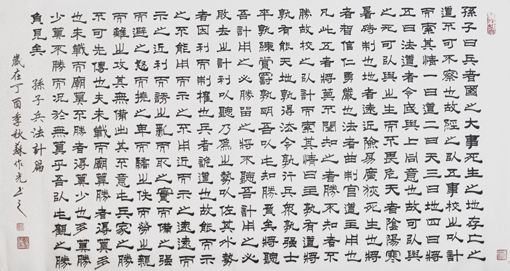 孫子曰兵者國之大事死生之地存亡之
道不可不察也故經之以五事校之以計
而索其情一曰道二曰天三曰地四曰將
五曰法道者令民與上同意也故可以與
之死可以與之生而不畏危天者陰陽寒
暑時制也地者遠近險易廣狹死生也將
者智信仁勇嚴也法者曲制官道主用也
凡此五者將莫不聞知之者勝不知者不
勝故校之以計而索其情曰主孰有道將
孰有能天地孰得法令孰行兵眾孰強士
卒孰練賞罰孰明吾以此知勝負矣將聽
吾計用之必勝留之將不聽吾計用之必
敗去之計利以聽乃為之勢以佐其外勢
者因利而制權也兵者詭道也故能而示
之不能用而示之不用近而示之遠遠而
示之近利而誘之亂而取之實而備之強
而避之怒而撓之卑而驕之佚而勞之親
而離之攻其無備出其不意此兵家之勝
不可先傳也夫未戰而廟算勝者得算多
也未戰而廟算不勝者得算少也多算勝
少算不勝而況於無算乎吾以此觀之勝
負見矣 孫子兵法計篇
歲在丁酉季秋蘇作光書之